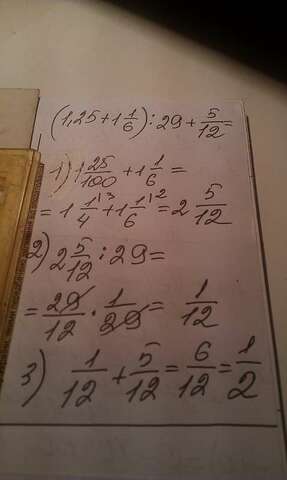 (1,25+1 1/6):29+5/12=
1) 1 25/100+1 1/6=
=1 1/4^3+1 1/6^2=2 5/12
2) 2 5/12:29=
=29/12·1/29=1/12
3) 1/12+5/12=6/12=1/2